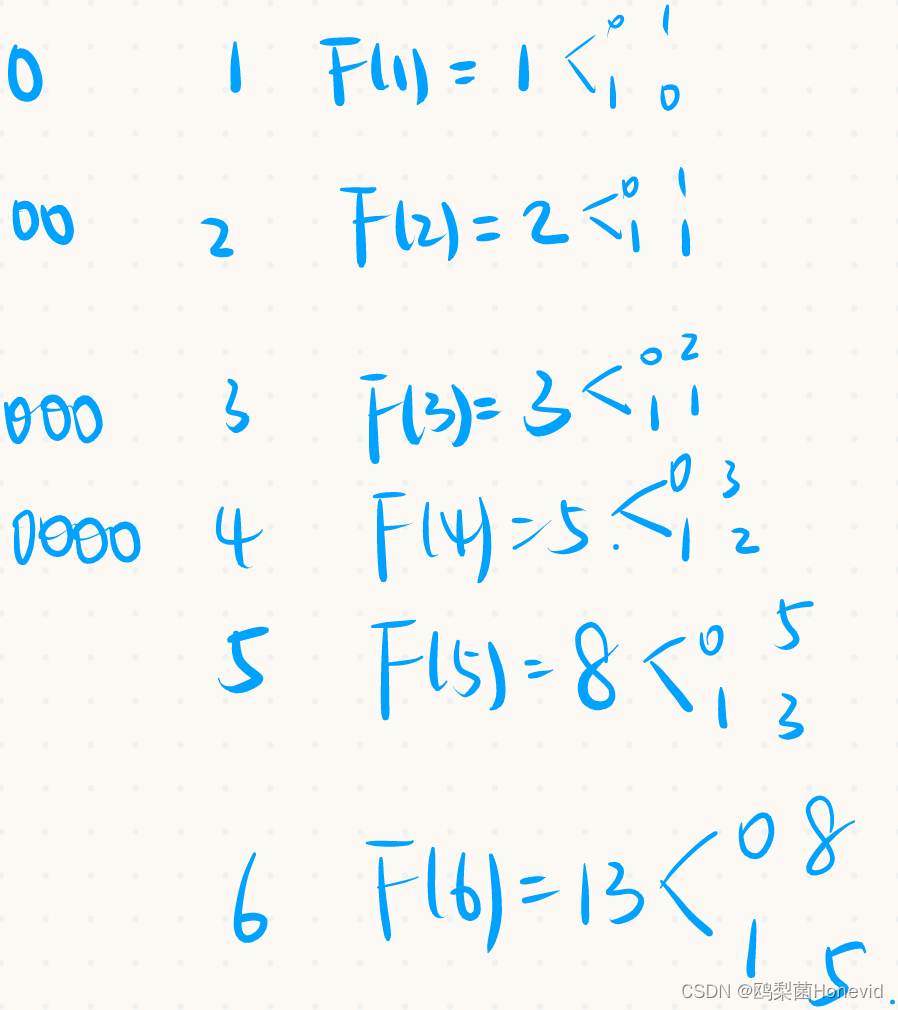 0 1 F(1) = 1 < 0 1
1 0
00 2 F(2) = 2 < 0 1
1 1
000 3 F(3) = 3 < 0 2
1 1
0000 4 F(4) = 5. < 0 3
1 2
5 F(5) = 8 < 0 5
1 3
6 F(6) = 13 < 0 8
1 5
CSDN @鸥梨菌Honevid